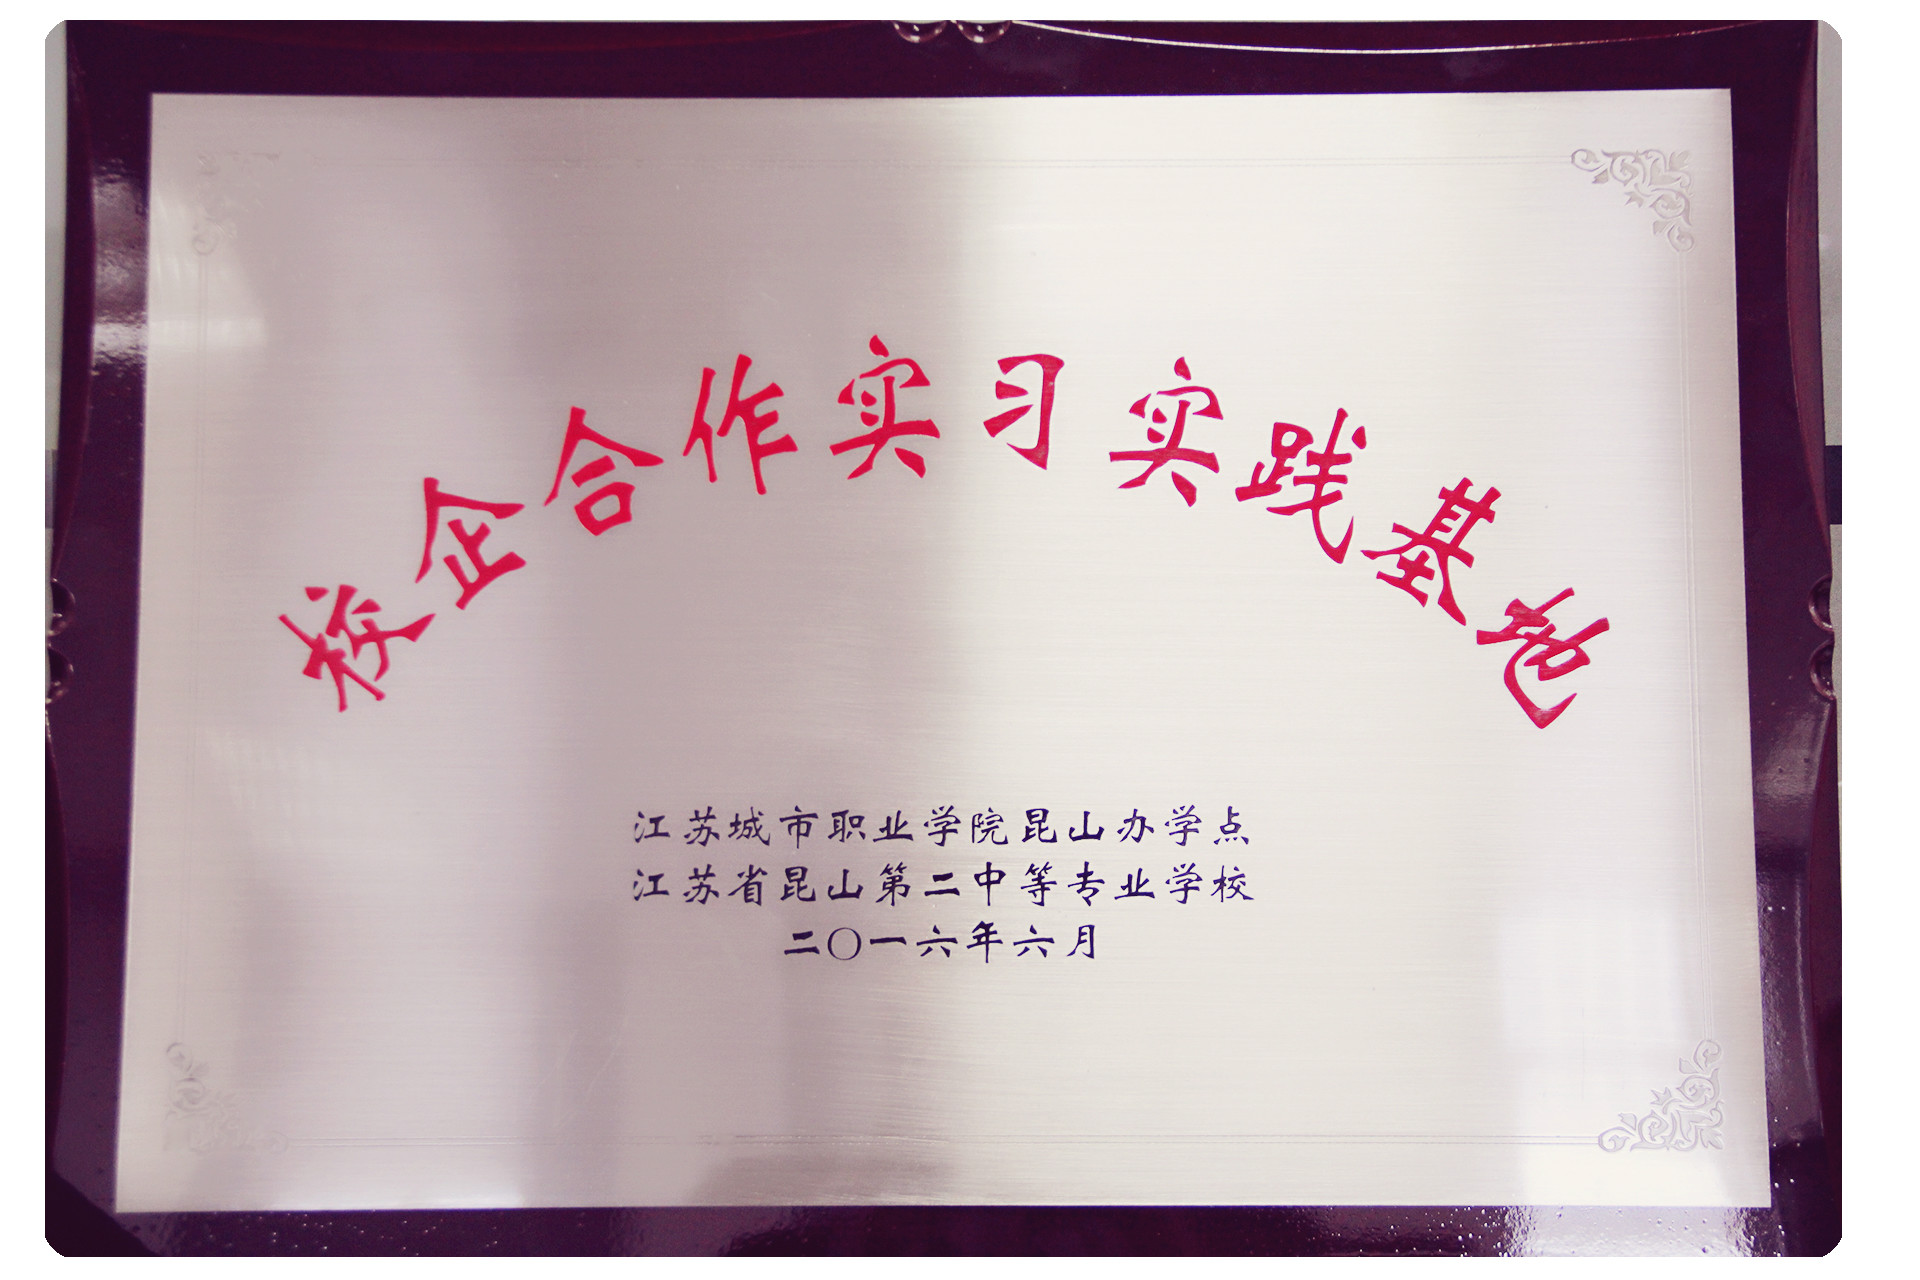 校企合作实习实践基地
江苏城市职业学院昆山办学点
江苏省昆山第二中等专业学校
二〇一六年六月